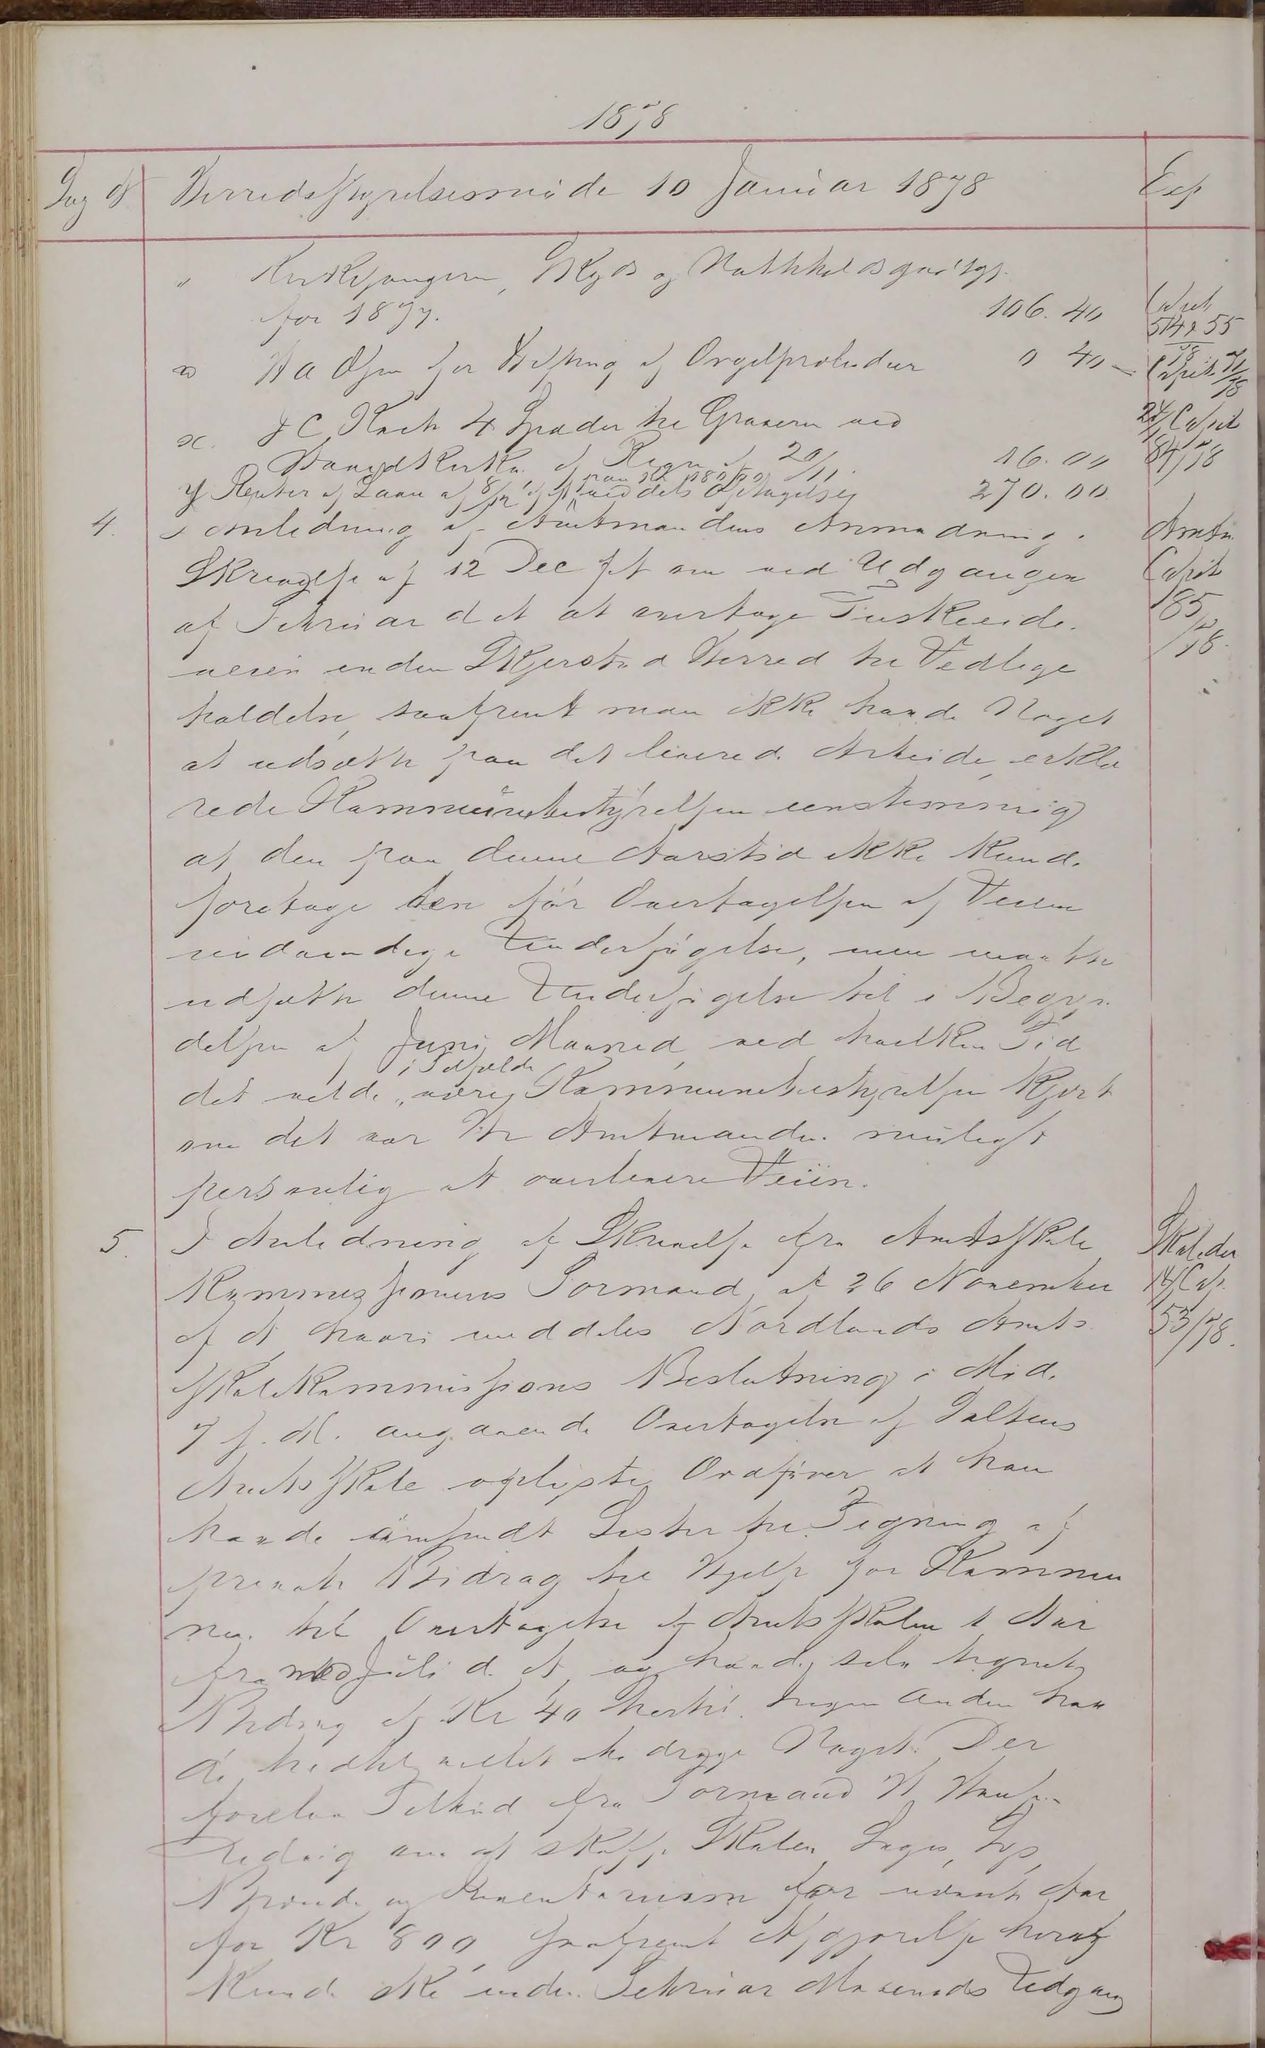 1878
Sag № Herredsstyrelsesmöde 10 Januar 1878 Exp
" Kirkesangeren, Skyds og Natteholdsgodtgj.
for 1877. 106.40 Copieb
Olsen for Stifting af Orgelpræludier 0 40
x. J C Koch 4 Spader til Graveren ved
Kirke af Regn. 20/11. 16.00
y Renter af Laan af ved dets Optagelse 270.00
4. I Anledning af Amtmandens Anmodning i Amtm
Skrivelse af 12 Dec f A om ved Udgangen Copieb
af Februar d A at overtage Fuskeeide 185
veien inden Skjerstad Herred til Vedlige /78.
holdelse, saafremt man ikke havde Noget
at udsætte paa det leverede Arbeide, erklæ
rede Kommunebestyrelsen eenstemmig
at den paa denne Aarstid ikke kunde
foretage den før Overtagelsen af Veien
nødvendige Undersøgelse, men maatte
udsætte denne Undersøgelse til i Begyn
delsen af Juni Maaned, ved hvilken Tid
i Tilfælde
det vilde være Kommunebestyrelsen kjert
om det var Hr Amtmanden muligt
personlig at overlevere Veien.
5. I Anledning af Skrivelse fra Amtsskole Skoledir
Kommissionens Formand af 26 November Cop.
f A hvori meddeles Nordlands Amts 53/78.
skolekommissions Beslutning i Møde
7 s. M. angaaende Overtagelse af Saltens
Amtsskole oplyste Ordføreren at han
havde omsendt Lister til Tegning af
private Bidrag til Hjelp for Kommu
nen til Overtagelse af Amtsskolen 1 Aar
fra Juli d. A og havde selv tegnet
Bidrag af Kr 40 hertil. Ingen Anden hav
de hertil villet bidrage Noget. Der
forelaa Tilbud fra Formand H.
om at skaffe Skolen Logis, Lys,
Brænde og Inventarium for næste Aar
for Kr 800, saafremt Afgjørelse herom
kunde ske inden Februar Maaneds Udgang